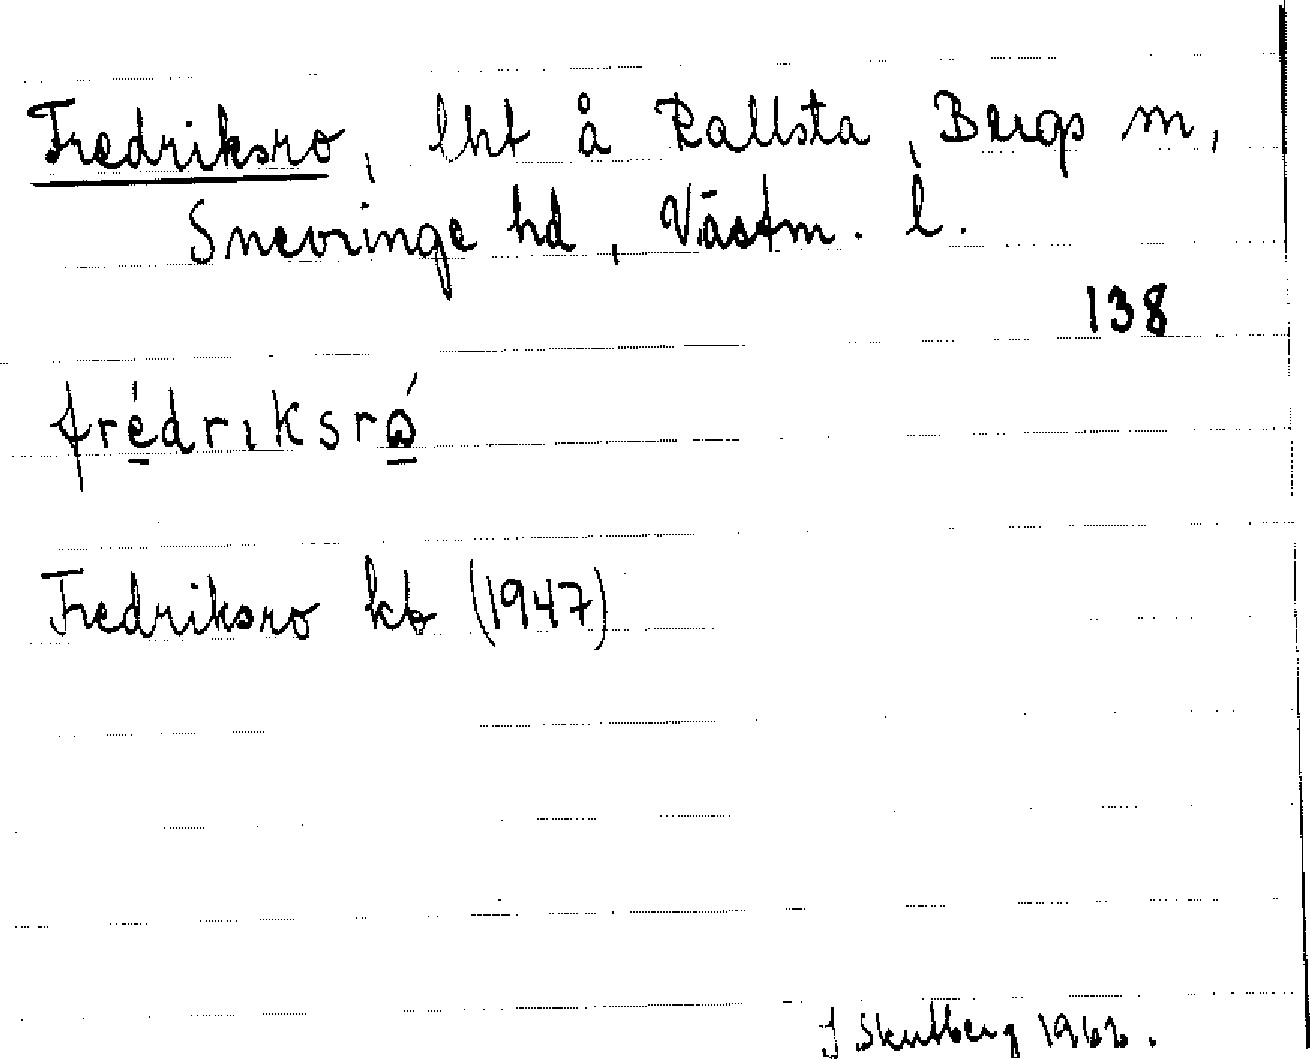 Fredriksro, lht å Rallsta, Bergs sn,
Snevringe hd, Västm. l.
138
frédriksró
Fredriksro kb (1947)
J Skutberg